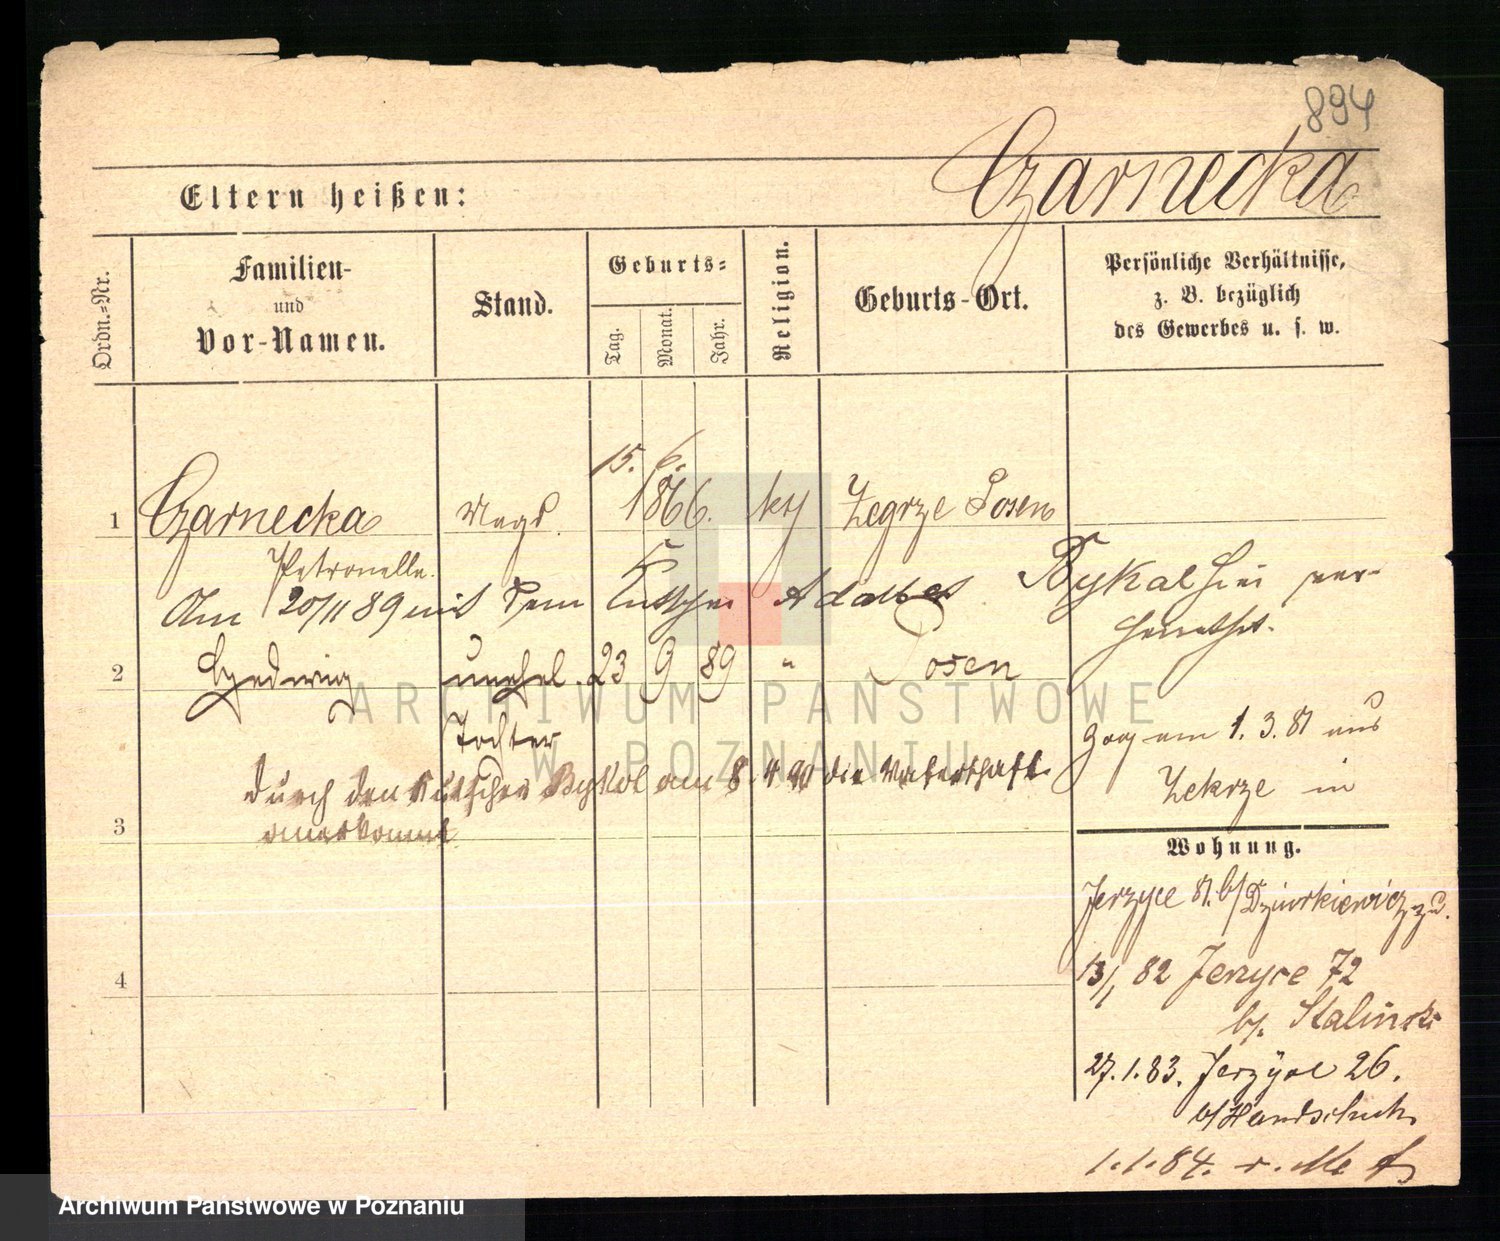 894
Czarnecka
Eltern heißen:
Ordn.-Nr.
Familien-
und
Vor-Namen.
Stand.
Geburts-
Tag.
Monat.
Jahr.
Religion.
Geburts-Ort.
Persönliche Verhältnisse,
z. B. bezüglich
des Gewerbes u. s. w.
15. 6.
1 Czarnecka Magd 1866. kth Zegrze Posen
Petronella.
Am 20/11 89 mit dem Kutscher Adalbert Bykal hier ver-
heirathet.
2 Hedwig unehel. 23 9 89 " Posen
Tochter
zog am 1. 3. 81 aus
Zekrze in
durch den Kutscher Bykal am 8. 4 90 die Vaterschaft
anerkannt
3
Wohnung.
Jerzyce 81. b/ Dziurkiewicz
13/1 82 Jerzyce 72
4
b/. Stalinski
27. 1. 83. Jerzyce 26.
b/ Handschuh
1. 1. 84.
ARCHIWUM PAŃSTWOWE
W POZNANIU
Archiwum Państwowe w Poznaniu